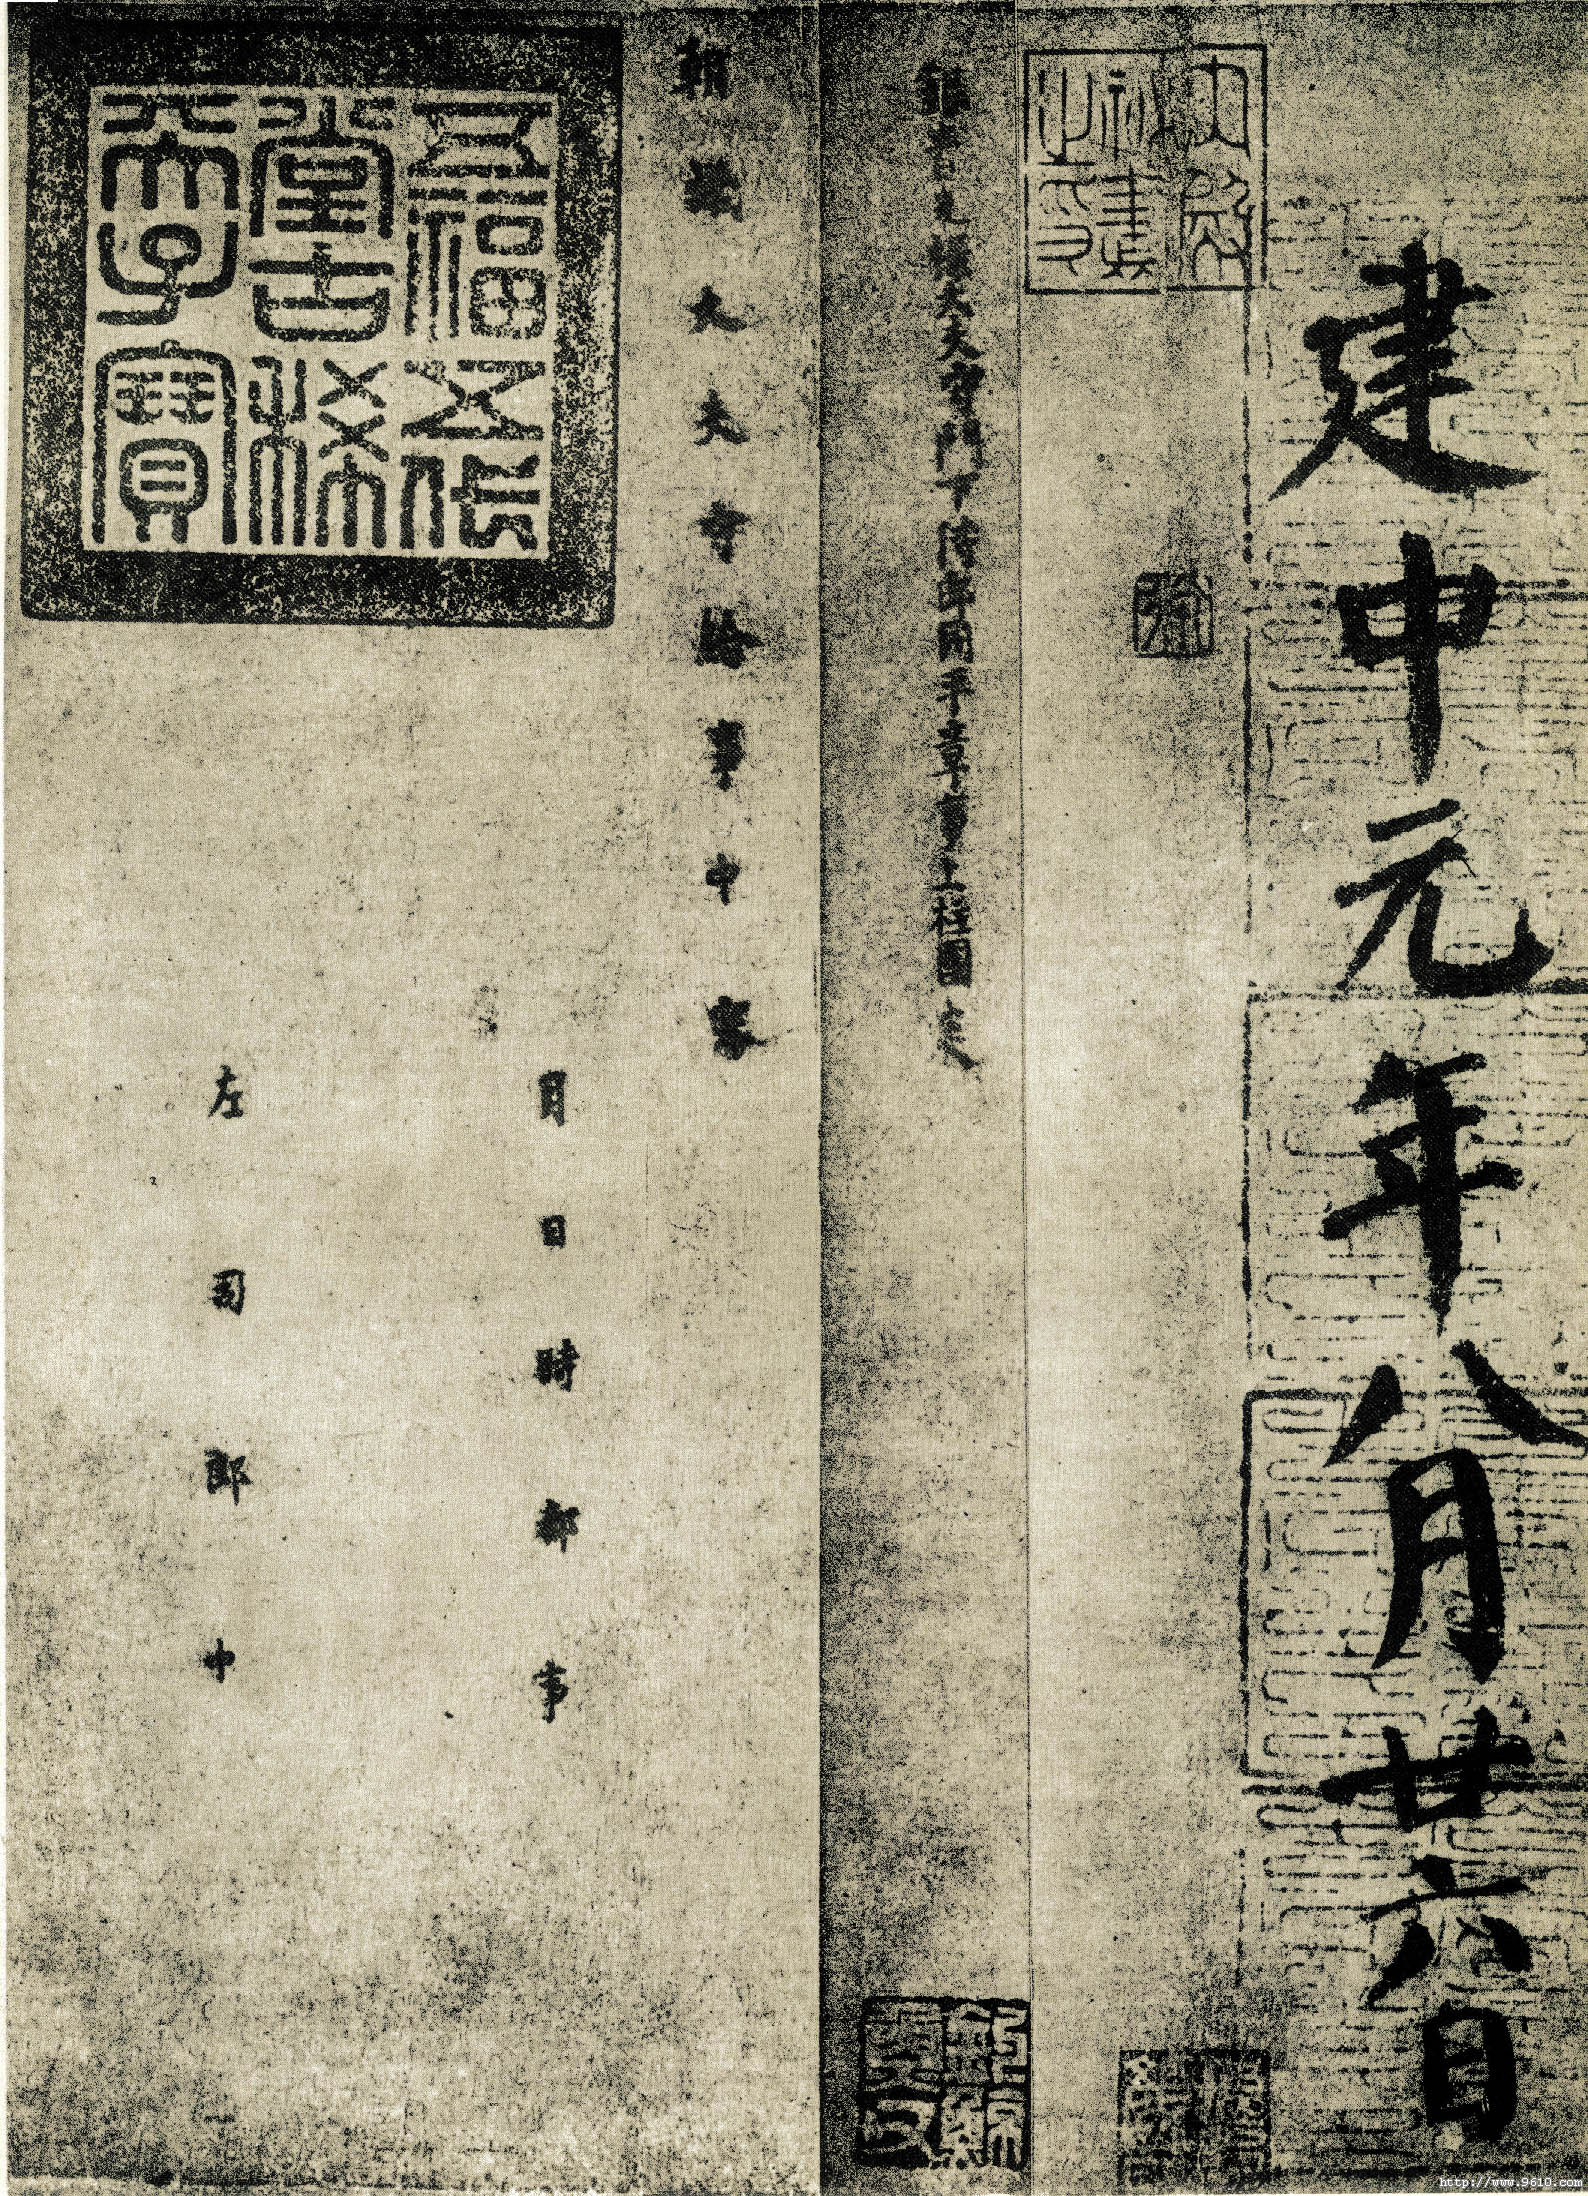 建中元年八月廿六日
銀青光祿大夫守門下侍郎同平章事上柱國炎
朝議大夫守給事中審
月日時都事
左司郎中
五福五代
堂古稀
天子寶
http://www.9610.com